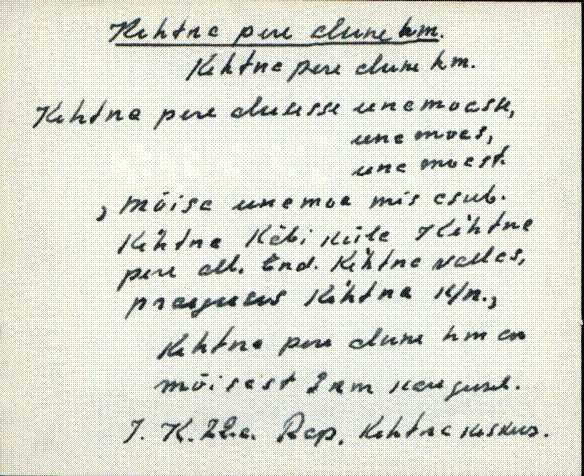 Kehtna pere alune hm.
Kehtna pere alune hm.
Kehtna pere alusesse unemoasse,
unemoas,
unemoast.
, mõisa unemoa mis asub.
Kehtna Käbi küla Kehtna
pere all. End. Kehtna vallas,
praegusus Kehtna k/n.,
Kehtna pere alune hm on
mõisast 2 km kaugusel.
J. K. 72.a. Rap. Kehtna keskus.